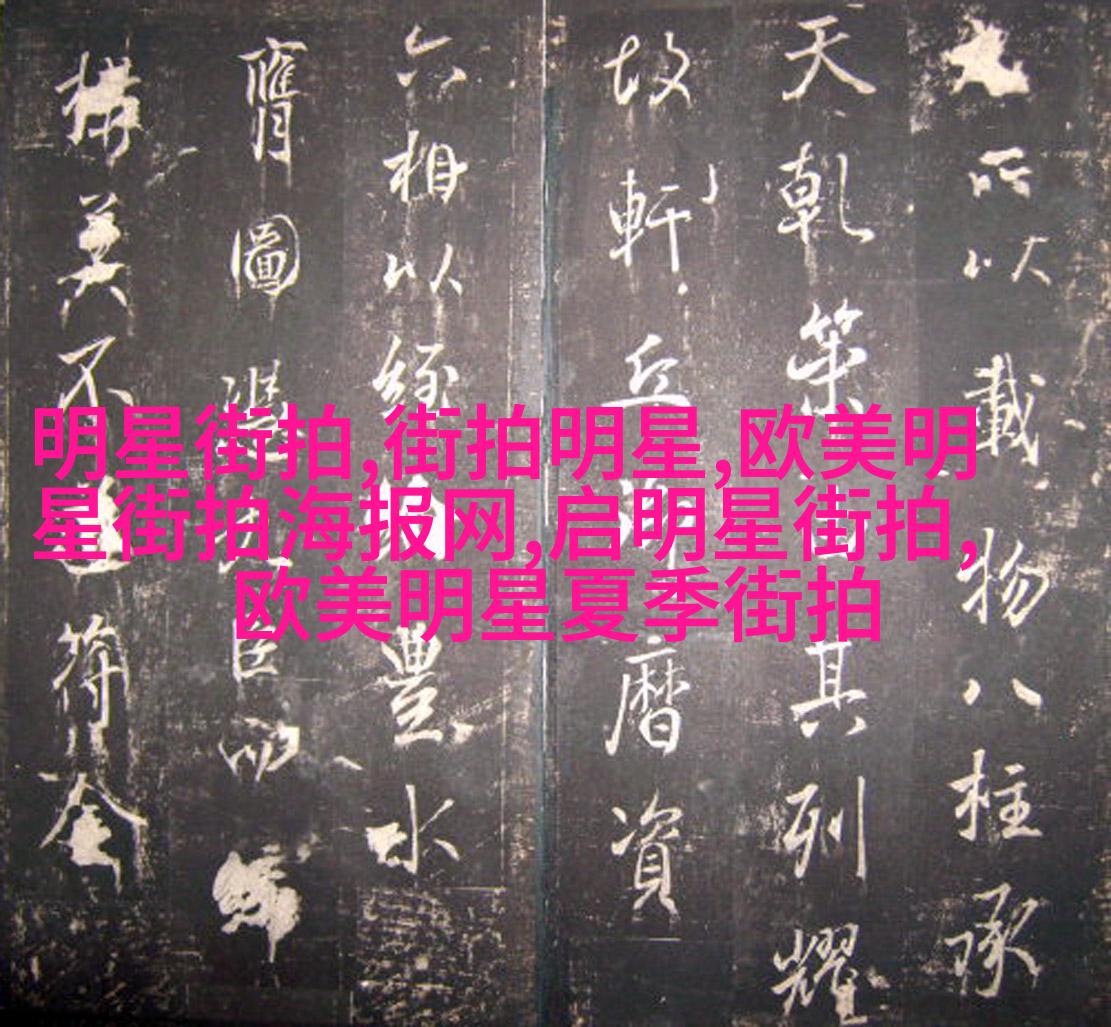 所以載物八柱承
天乾策其列耀
故軒丘曆資
六相以經豐水
膺圖臣
構美不符奎
明星街拍,街拍明星,欧美明
星街拍海报网,启明星街拍,
欧美明星夏季街拍